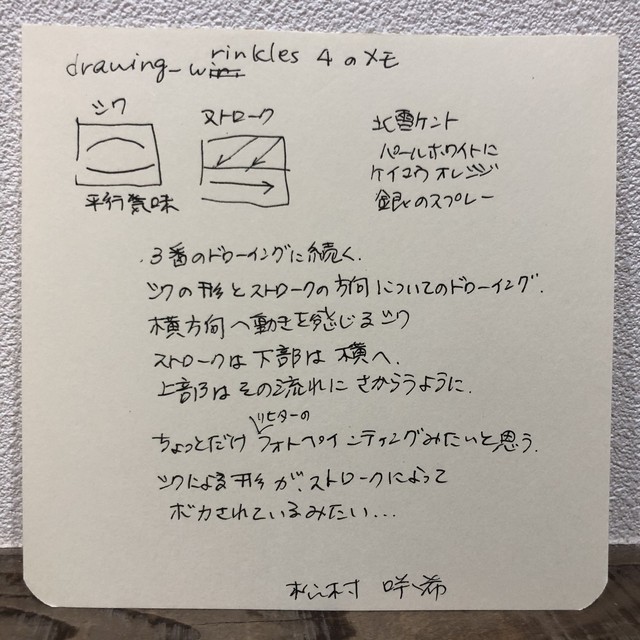 drawing_wrinkles 4のメモ
シワ
平行気味
ストローク
北雪ケント
パールホワイトに
ケイコウオレンジ
銀のスプレー
・3番のドローイングに続く.
シワの形とストロークの方向についてのドローイング.
横方向へ動きを感じるシワ
ストロークは下部は横へ.
上部はその流れにさからうように.
リヒターの
ちょっとだけフォトペインティングみたいと思う.
シワによる形が、ストロークによって
ボカされているみたい...
松村 咲希